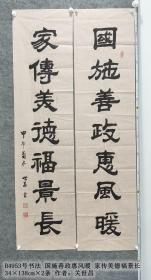 國施善政惠風暖
家傳美德福景長
甲午菊月
B4953号书法 国施善政惠风暖 家传美德福景长
34×138cm×2条 作者：关世昌